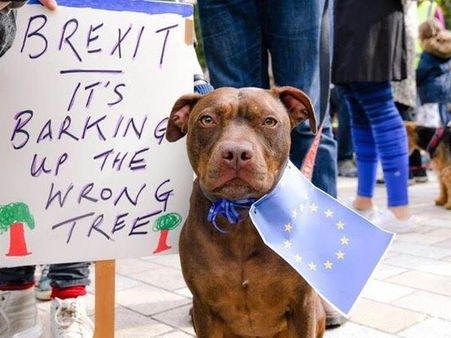 BREXIT
IT'S
BARKING
UP THE
WRONG
TREE